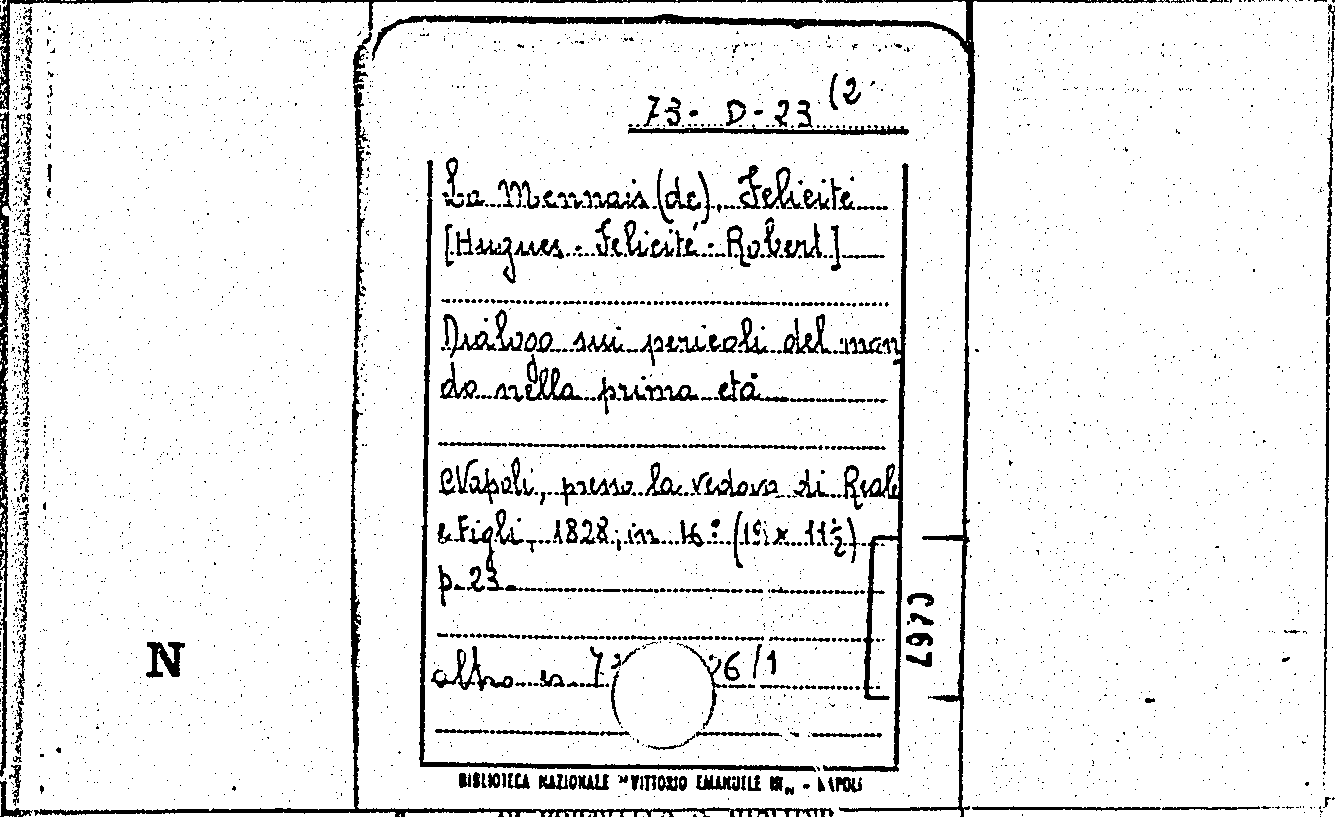 73- D-23 (2
La Mennais (de), Felicité
[Hugues - Felicité - Robert]
Dialogo sui pericoli del mon
do nella prima età
Napoli, presso la vedova di Reale
e Figli, 1828; in 16° ( x 11½)
p. 23.
altro es. 26/1
N
BIBLIOTECA NAZIONALE "VITTORIO EMANUELE III" - NAPOLI